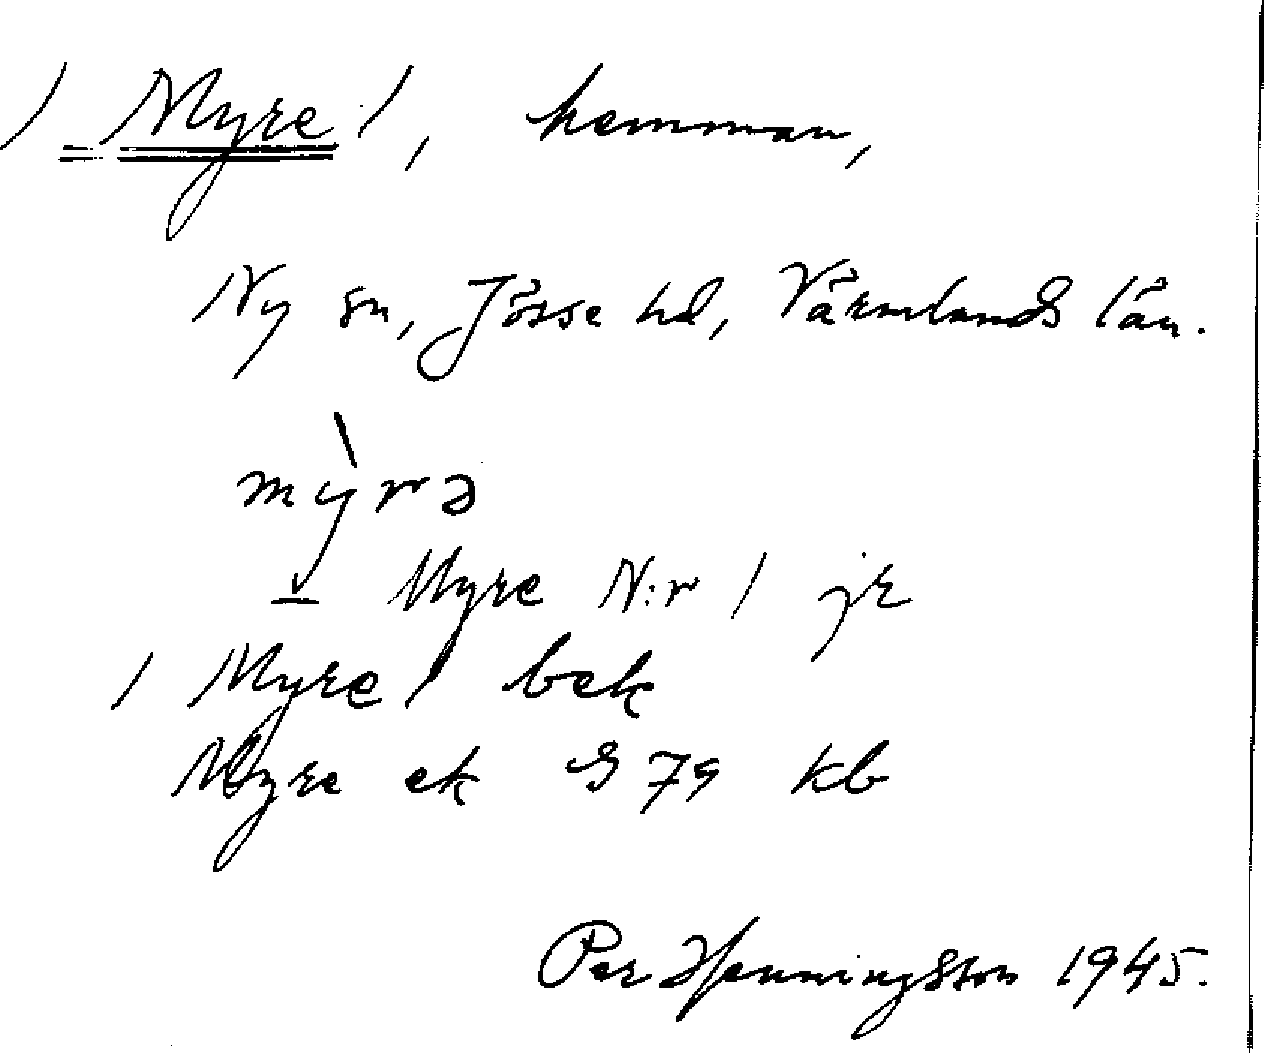 / Myre /, hemman,
Ny sn, Jösse hd, Värmlands län.
mỳrə
Myre N:r 1 jr
/ Myre / bek
Myre ek S 79 kb
Per Henningsson 1945.